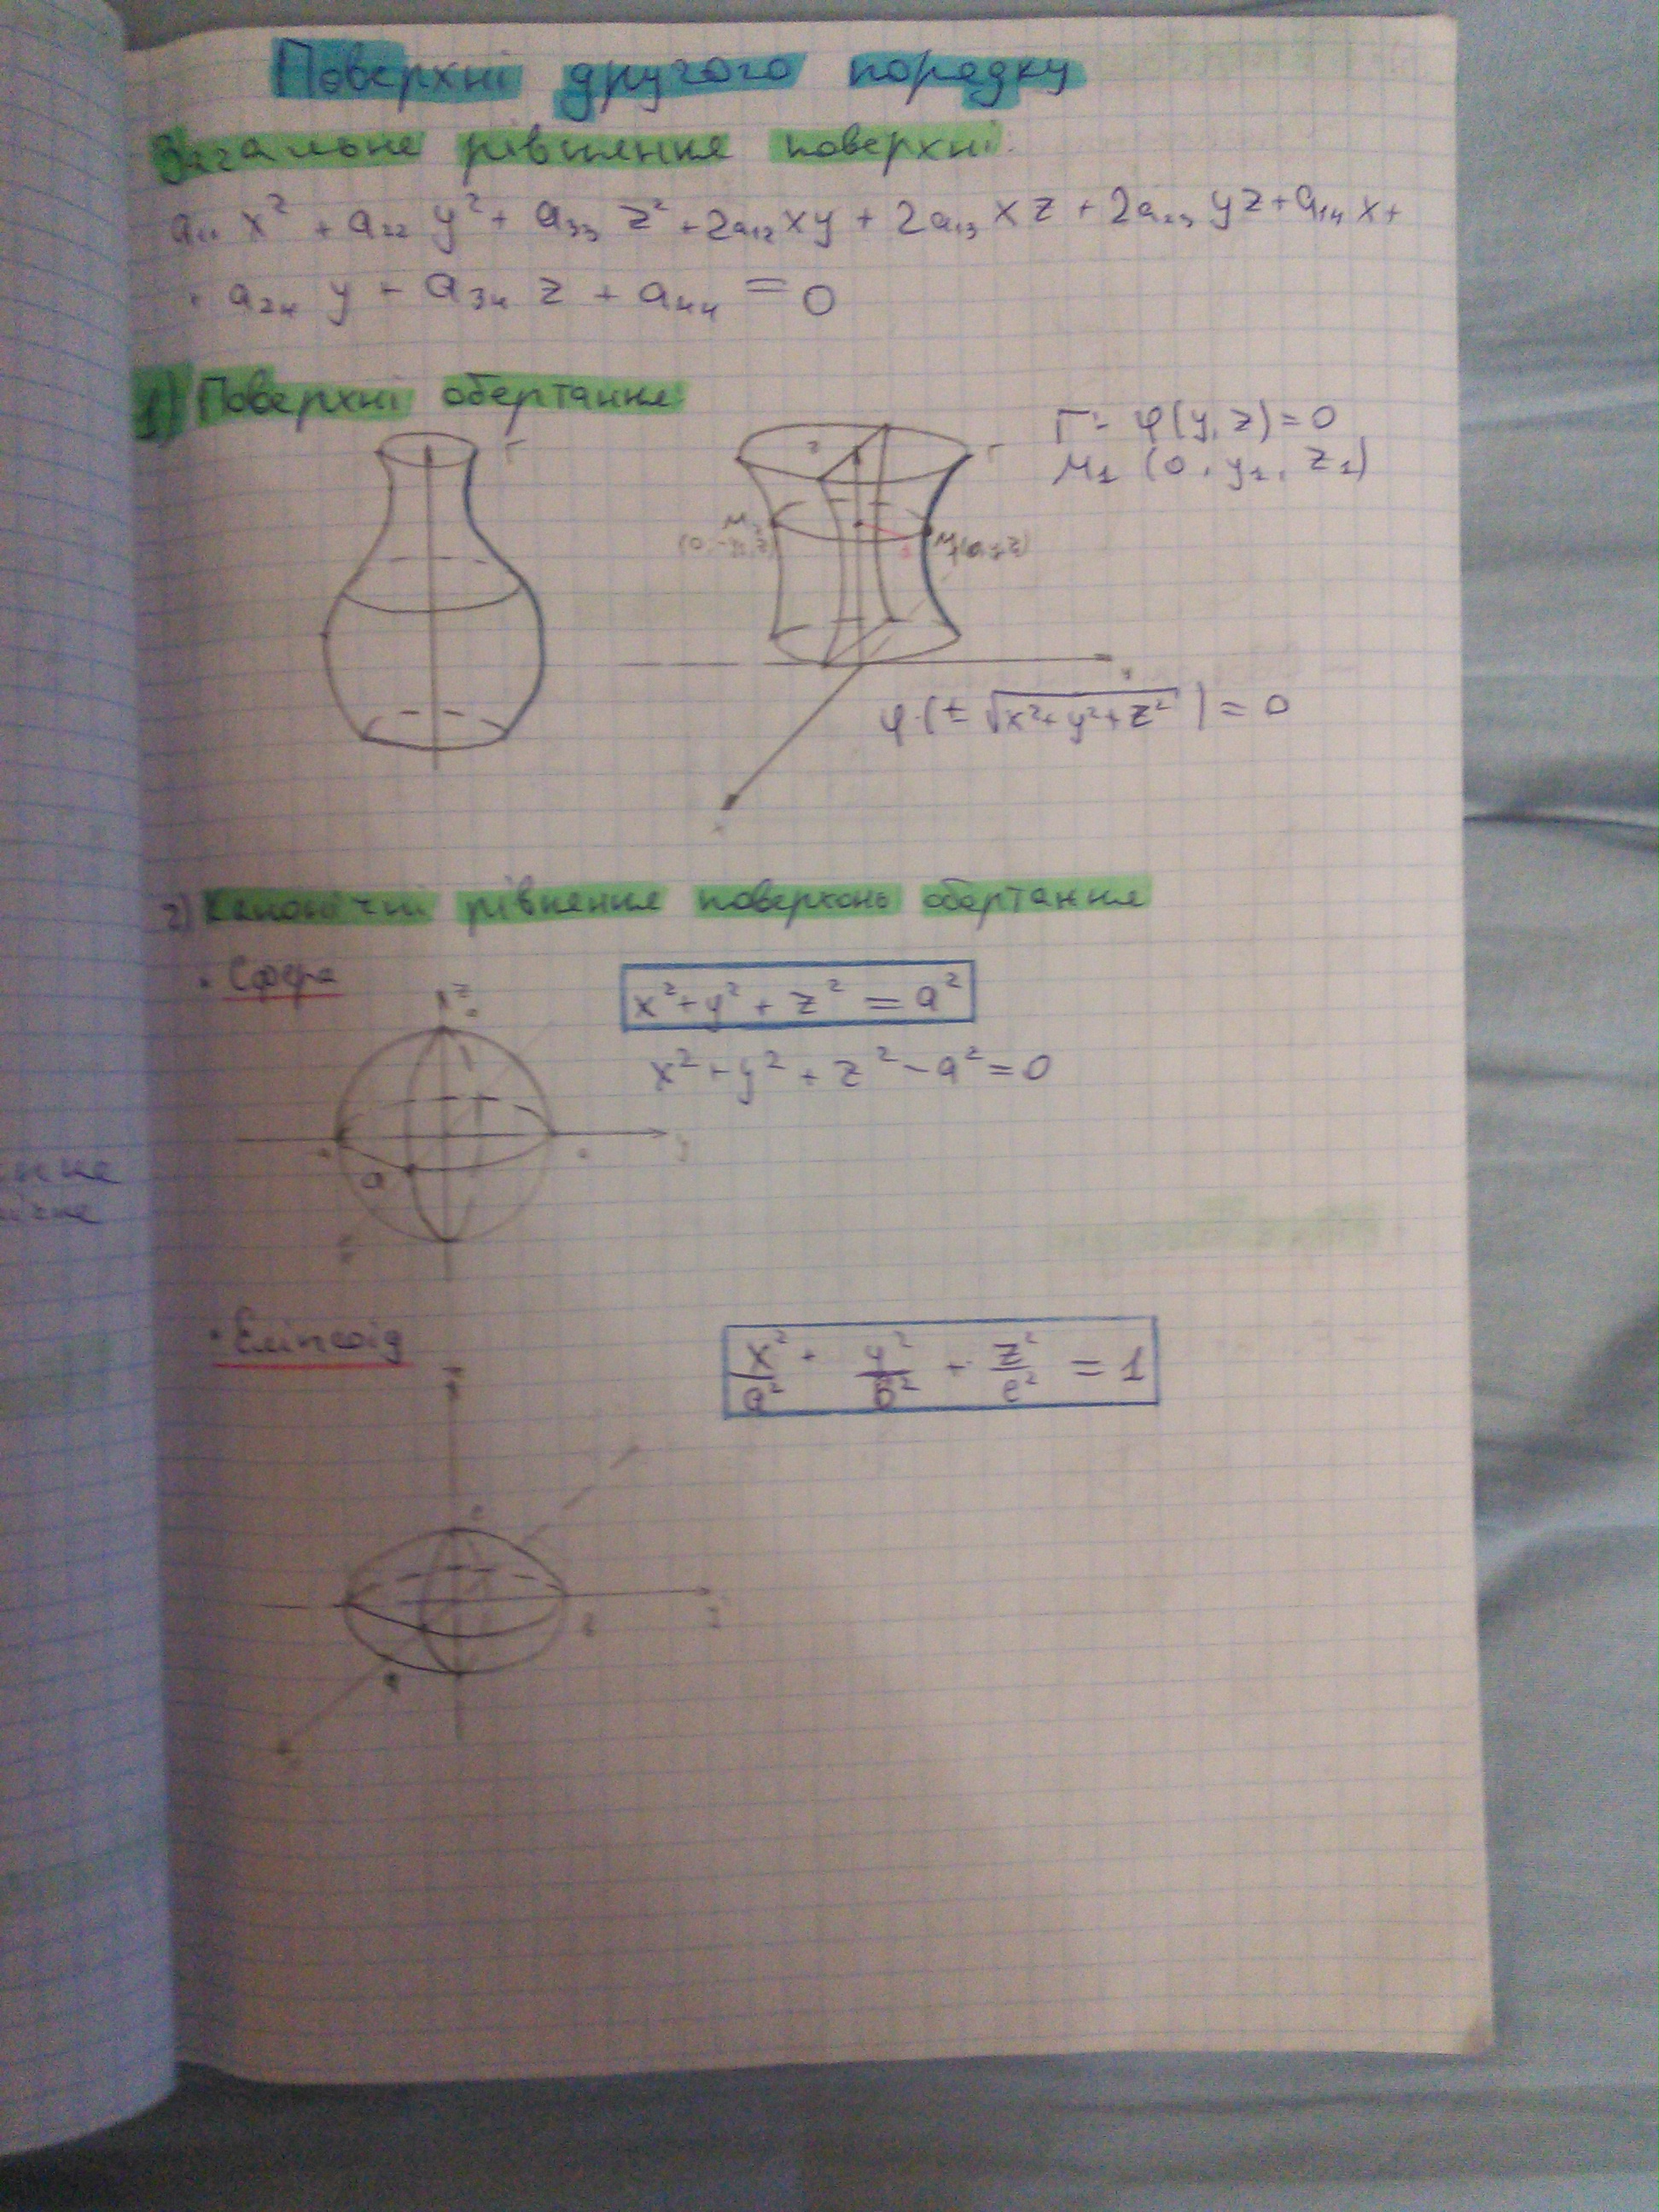 Поверхні другого порядку
Загальне рівняння поверхні:
a₁₁ x² + a₂₂ y² + a₃₃ z² + 2a₁₂ xy + 2a₁₃ xz + 2a₂₃ yz + a₁₄ x +
+ a₂₄ y + a₃₄ z + a₄₄ = 0
1) Поверхні обертання
Г: φ(y, z) = 0
M₁ (0, y₁, z₁)
Г
Г
z
φ (± √x²+y²+z²) = 0
x
2) Канонічні рівняння поверхонь обертання
• Сфера
x² + y² + z² = a²
x² + y² + z² − a² = 0
z
y
a
• Еліпсоїд
x²/a² + y²/b² + z²/c² = 1
z
c
нне
ічне